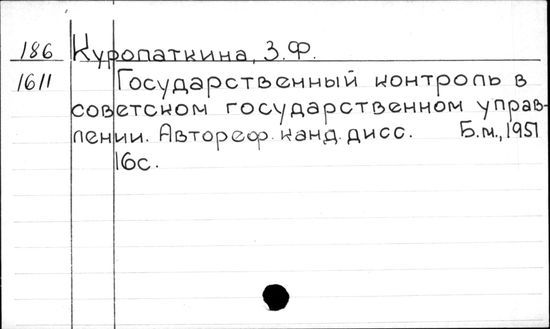 186 Куропаткина, З.Ф.
1611 Государственный контроль в
советском государственном управ-
лении. Автореф. канд. дисс. Б.м., 1951
16с.